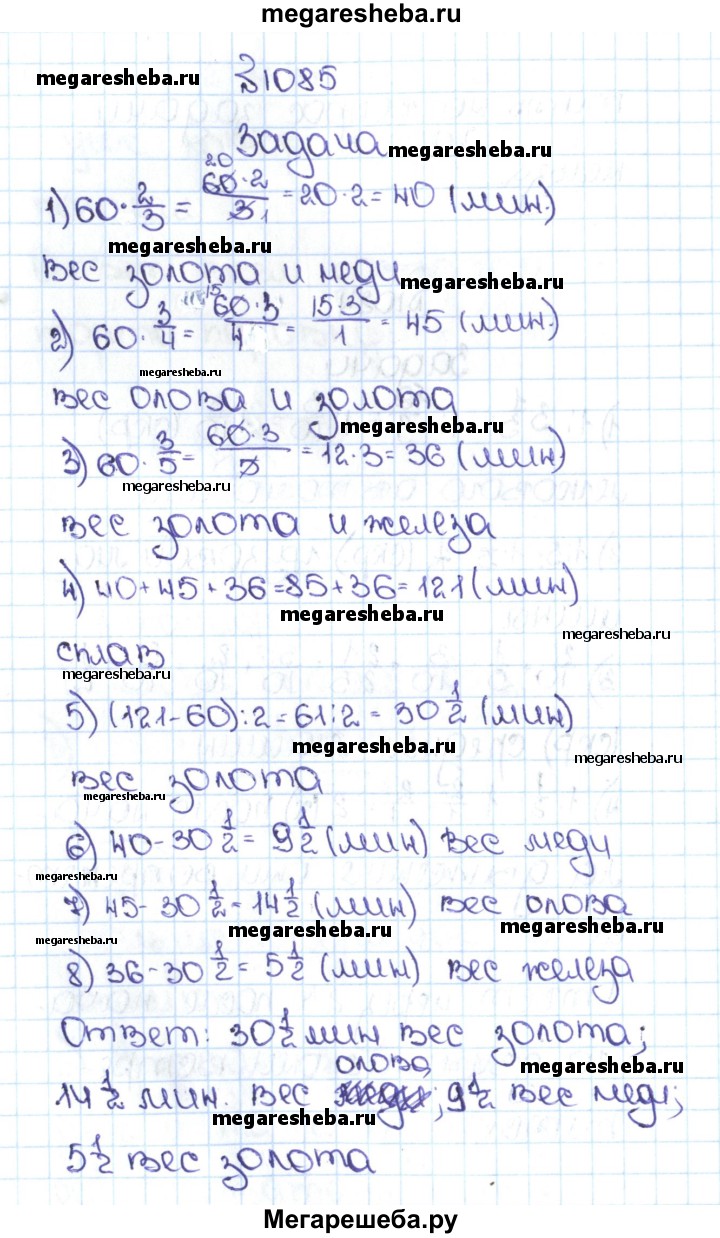 megaresheba.ru
megaresheba.ru №1085
Задача megaresheba.ru
1) 60·2/3 = 60·2/3 = 20·2 = 40 (мин.)
20 1
megaresheba.ru
вес золота и меди megaresheba.ru
2) 60·3/4 = 60·3/4 = 15·3/1 = 45 (мин.)
15
megaresheba.ru
вес олова и золота
megaresheba.ru
3) 60·3/5 = 60·3/5 = 12·3 = 36 (мин)
megaresheba.ru
вес золота и железа
4) 40+45+36=85+36=121 (мин)
megaresheba.ru
megaresheba.ru
сплав
megaresheba.ru
5) (121-60):2=61:2=30 1/2 (мин)
megaresheba.ru
вес золота
megaresheba.ru
6) 40-30 1/2 = 9 1/2 (мин) вес меди
megaresheba.ru
7) 45-30 1/2 = 14 1/2 (мин) вес олова
megaresheba.ru megaresheba.ru
megaresheba.ru
8) 36-30 1/2 = 5 1/2 (мин) вес железа
Ответ: 30 1/2 мин вес золота;
олова
megaresheba.ru
14 1/2 мин. вес ; 9 1/2 вес меди;
megaresheba.ru
5 1/2 вес золота
Мегарешеба.ру